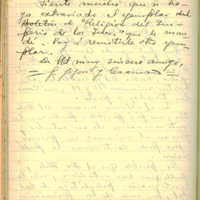 Siento mucho que se ha-
ya extraviado el ejemplar del
"Religión del Im-
perio de los Incas," que le man-
dé. Voy a remitirle otro ejem-
plar.
De Ud muy sincero amigo,